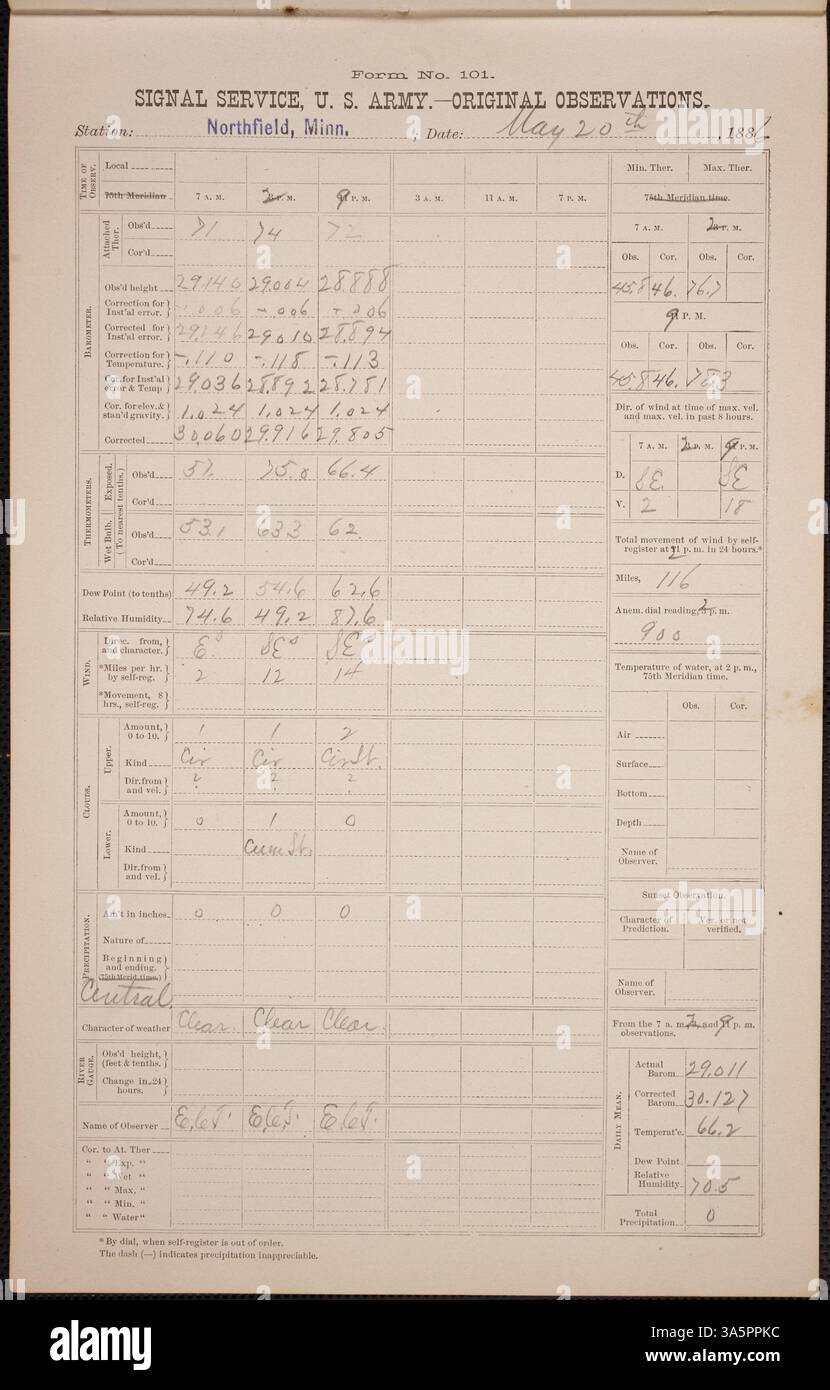 Form No. 101.
SIGNAL SERVICE, U. S. ARMY.—ORIGINAL OBSERVATIONS.
Station: Northfield, Minn. ; Date: May 20th , 1886
TIME OF OBSERV.
Local
75th Meridian 7 A. M. 2 P. M. 9 P. M. 3 A. M. 11 A. M. 7 P. M.
BAROMETER.
Attached Ther.
Obs'd 71 74 72
Cor'd
Obs'd height 29.140 29.004 28.888
Correction for Inst'al error. +.006 +.006 +.006
Corrected for Inst'al error. 29.146 29.010 28.894
Correction for Temperature. -.110 -.118 -.113
Cor. for Inst'al error & Temp 29.036 28.892 28.781
Cor. for elev. & stan'd gravity. 1.024 1.024 1.024
Corrected 30.060 29.916 29.805
THERMOMETERS.
Exposed. (To nearest tenths.)
Obs'd 57. 75.0 66.4
Cor'd
Wet Bulb.
Obs'd 53.1 63.3 62
Cor'd
Dew Point (to tenths) 49.2 54.6 62.6
Relative Humidity 74.6 49.2 87.6
WIND.
Direc. from, and character. E SE SE
*Miles per hr. by self-reg. 2 12 14
*Movement, 8 hrs., self-reg.
CLOUDS.
Upper.
Amount, 0 to 10. 1 1 2
Kind Cir Cir Cir St.
Dir. from and vel. ? ? ?
Lower.
Amount, 0 to 10. 0 1 0
Kind Cum St.
Dir. from and vel.
PRECIPITATION.
Am't in inches. 0 0 0
Nature of
Beginning and ending. (75th Merid. time.)
Central
Character of weather Clear. Clear Clear.
RIVER GAUGE.
Obs'd height, (feet & tenths.)
Change in 24 hours.
Name of Observer
Cor. to At. Ther
" " Exp. "
" " Wet "
" " Max. "
" " Min. "
" " Water "
* By dial, when self-register is out of order.
The dash (—) indicates precipitation inappreciable.
Min. Ther. Max. Ther.
75th Meridian time.
7 A. M. 2 P. M.
Obs. Cor. Obs. Cor.
45.8 46. 76.7
9 P. M.
Obs. Cor. Obs. Cor.
45.8 46. 78.3
Dir. of wind at time of max. vel. and max. vel. in past 8 hours.
7 A. M. 2 P. M. 9 P. M.
D. SE. SE
V. 2 18
Total movement of wind by self-register at 2 p. m. in 24 hours.*
Miles, 116
Anem. dial reading, 2 p. m.
900
Temperature of water, at 2 p. m., 75th Meridian time.
Obs. Cor.
Air
Surface
Bottom
Depth
Name of Observer.
Sunset Observation.
Character of Prediction. Ver. or not verified.
Name of Observer.
From the 7 a. m. 2, and 9 p. m. observations.
DAILY MEAN.
Actual Barom. 29.011
Corrected Barom. 30.127
Temperat'e. 66.2
Dew Point
Relative Humidity. 70.5
Total Precipitation. 0
alamy
Image ID: 3A5PPKC
www.alamy.com